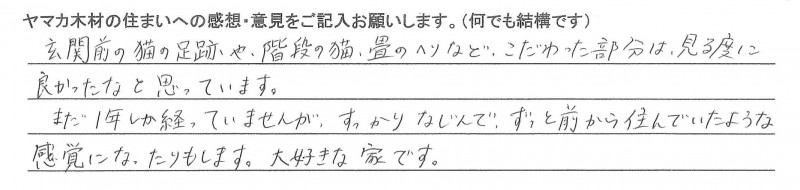 ヤマカ木材の住まいへの感想・意見をご記入お願いします。(何でも結構です)
玄関前の猫の足跡や、階段の猫、畳のヘリなど、こだわった部分は、見る度に
良かったなと思っています。
まだ1年しか経っていませんが、すっかりなじんで、ずっと前から住んでいたような
感覚になったりもします。大好きな家です。